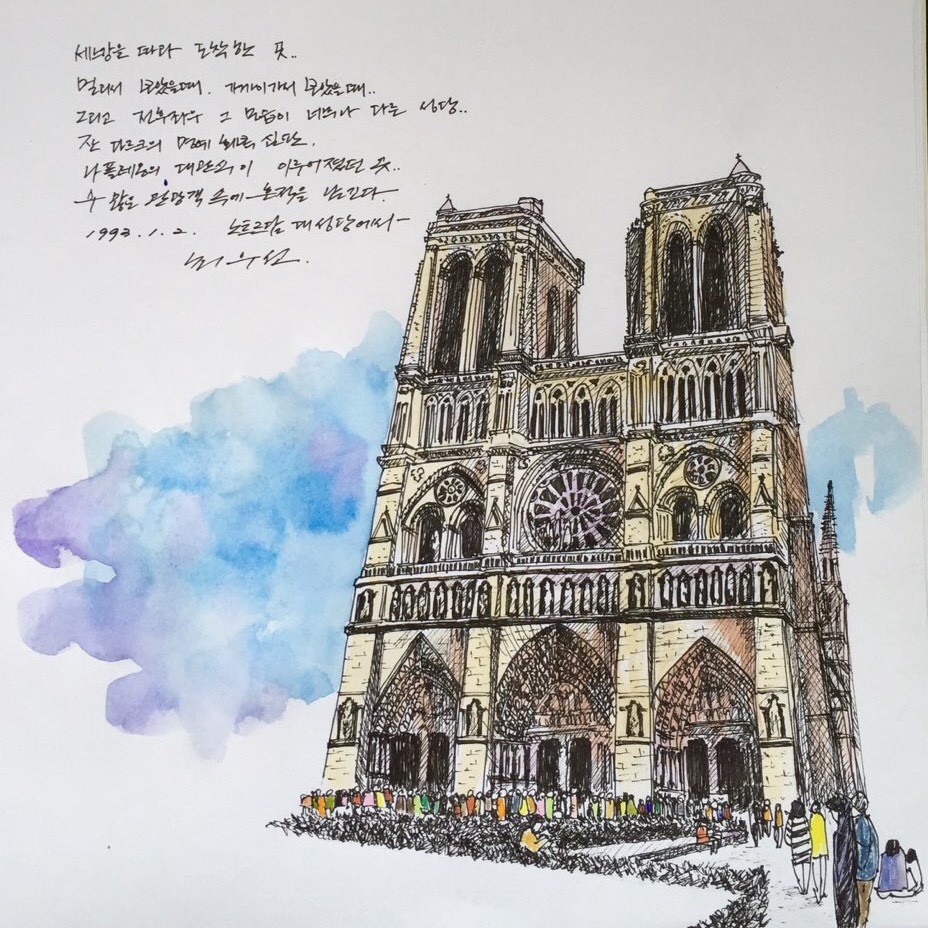 세느강을 따라 도착한 곳..
멀리서 보았을때. 가까이가서 보았을때..
그리고 전후좌우 그 모습이 너무나 다른 성당..
잔 다르크의 명예 회복 심판.
나폴레옹의 대관식이 이루어졌던 곳..
수 많은 관광객 속에 흔적을 남긴다.
1993.1.2. 노트르담 대성당에서-